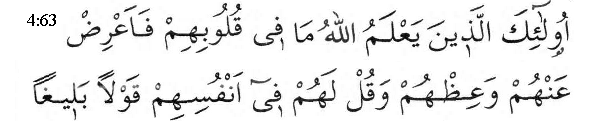 4:63 اُو۬لٰٓئِكَ الَّذٖينَ يَعْلَمُ اللّٰهُ مَا فٖى قُلُوبِهِمْ فَاَعْرِضْ
عَنْهُمْ وَعِظْهُمْ وَقُلْ لَهُمْ فٖٓى اَنْفُسِهِمْ قَوْلًا بَلٖيغًا